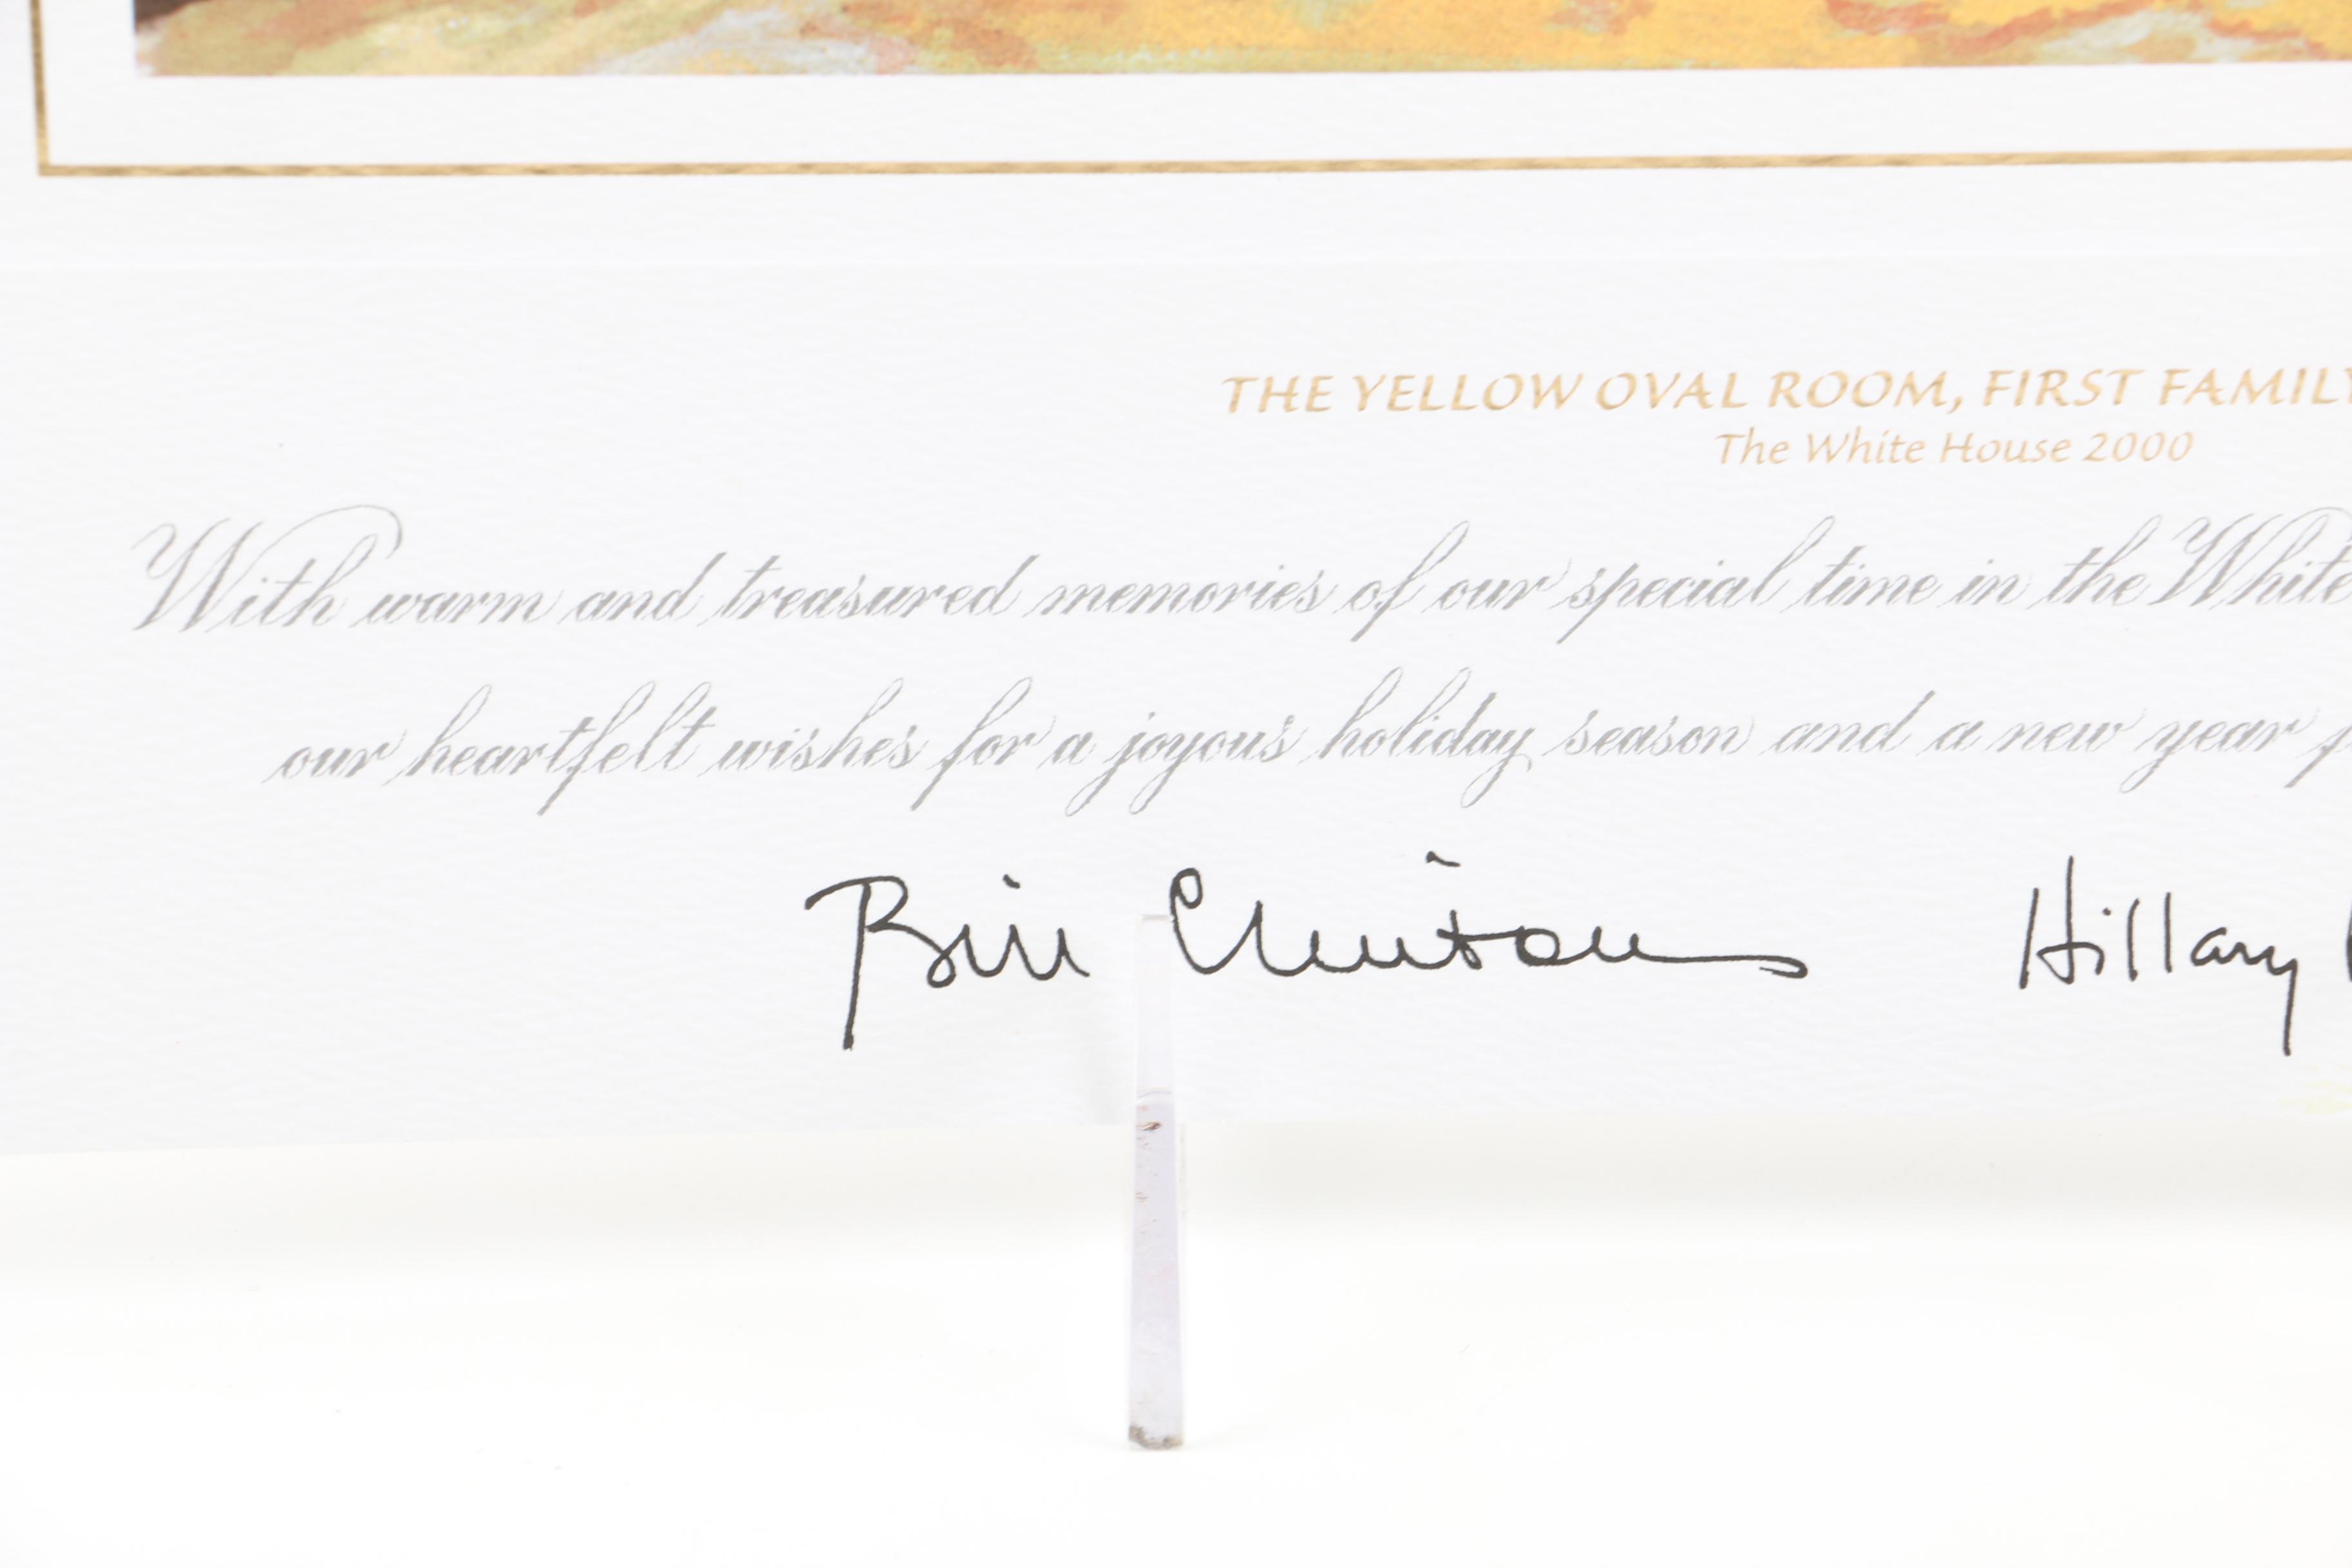 THE YELLOW OVAL ROOM, FIRST FAMILY
The White House 2000
With warm and treasured memories of our special time in the White
our heartfelt wishes for a joyous holiday season and a new year
Bill Clinton Hillary